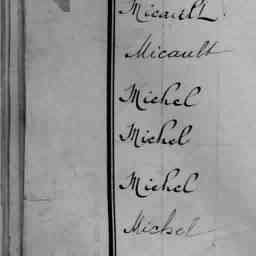 Micault
Micault
Michel
Michel
Michel
Michel